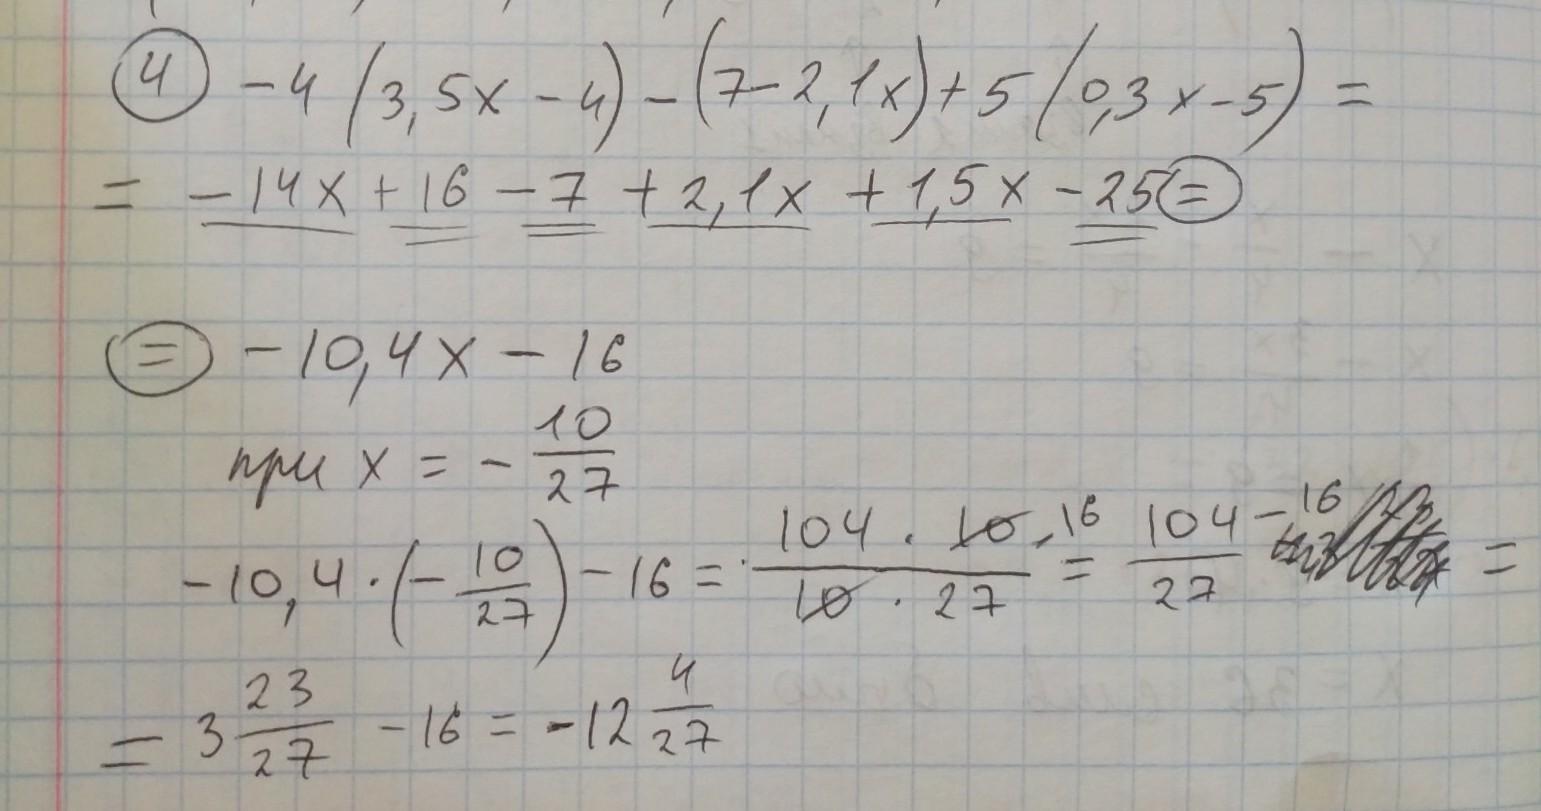 ④ -4(3,5x - 4) - (7 - 2,1x) + 5(0,3x - 5) =
= -14x + 16 - 7 + 2,1x + 1,5x - 25 =
= -10,4x - 16
при x = - 10/27
-10,4 · (- 10/27) - 16 = 104 · 10 / 10 · 27 - 16 = 104/27 - 16 =
= 3 23/27 - 16 = -12 4/27